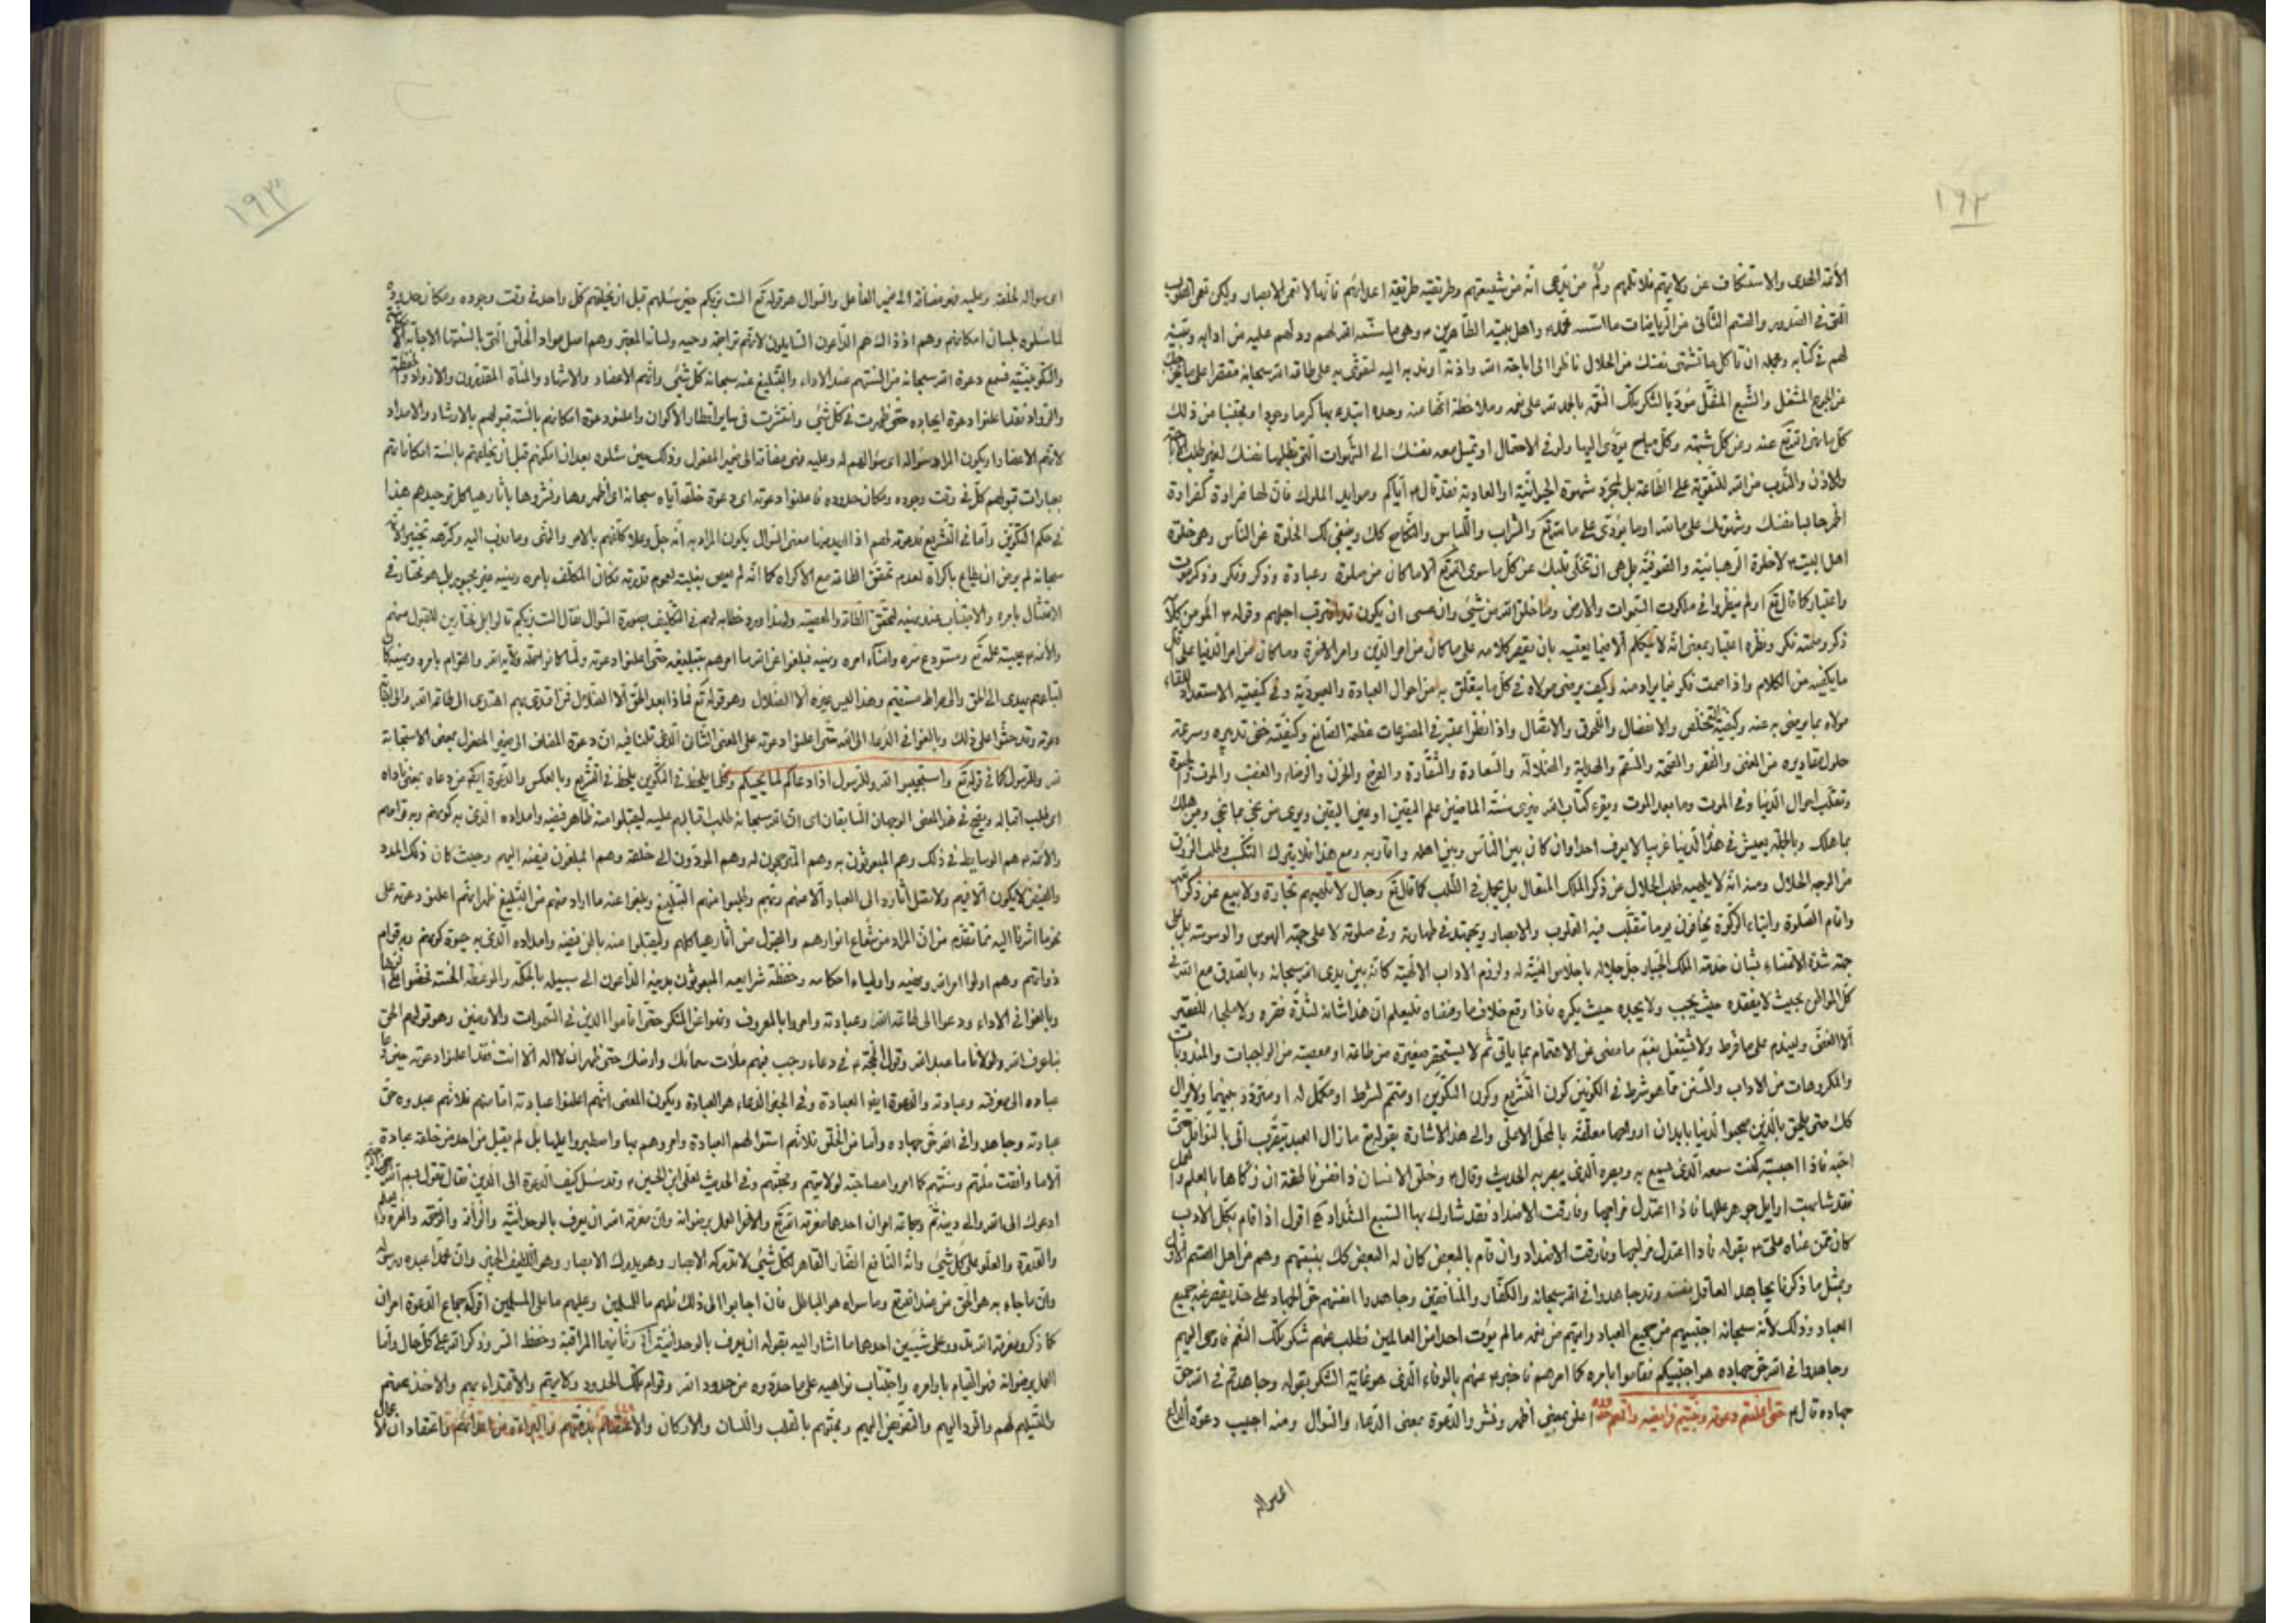 ١٩٢
الأئمة الهدى والاستنكاف عن ولايتهم فلا تلمهم ولم من يدعى انه من شيعتهم وطريقته طريقة اعدائهم فانها لا تعمى الابصار ولكن تعمى القلوب
التى في الصدور والقسم الثانى من الرياضات ما اسّسه محمد واهل بيته الطاهرين وهى ما سنّه الله لهم ودلهم عليه من ادابه وبيّنه
لهم في كتابه وجمله ان تأكل ما تشتهى نفسك من الحلال ناظرا الى اباحة الله واذنه او ندبه اليه لتقوى به على طاعة الله سبحانه مقتصرا على ما
عن الجوع المشغل والشبع المثقل مؤديا لشكر تلك النعم بالحمد لله على نعمه وملاحظة انها منه وحده ابتدء بها كرما وجودا ومجتنبا من ذلك
كل ما نهى الله تع عنه ومن كل شبهة وكل مباح يؤدى اليها ولو في الاحتمال او تميل معه نفسك الى الشهوات التى تطلبها نفسك لغير طلب
والاذن والندب من الله للتقوية على الطاعة بل لمجرد شهوة الحيوانية او العادية فقد قال اياكم وموايد الملوك فان لها ضراوة كضراوة
الخمر حابسا نفسك وشهوتك على ما لله او ما يؤدى على ما لله تع والشراب واللباس والنكاح كك وينبغى لك الخلوة عن الناس وهى خلوة
اهل البيت لا خلوة الرهبانية والصوفية بل هى ان تخلى قلبك عن كل ما سوى الله تع الا ما كان من صلوة وعبادة وذكر وفكر وذكر موت
واعتبار كما قال تع اولم ينظروا في ملكوت السموات والارض وما خلق الله من شئ وان عسى ان يكون قد اقترب اجلهم وقوله المؤمن كلامه
ذكر وصمته فكر ونظره اعتبار بمعنى انه لا يتكلم الا فيما يعنيه بان يقصر كلامه على ما كان من امر الدين وامر الاخرة وما كان من امر الدنيا على
ما يكفيه من الكلام واذا صمت فكر فيما يراد منه وكيف يرضى مولاه في كل ما يتعلق به من احوال العبادة والعبودية وفي كيفية الاستعداد للقاء
مولاه بما يرضى به عنه وكيفية التخلص والانفصال واللحوق والاتصال واذا نظر اعتبر في المصنوعات عظمة الصانع وكيفية خفى تدبيره وسرعة
حلول مقاديره من الغنى والفقر والصحة والسقم والهداية والضلالة والسعادة والشقاوة والفرح والحزن والرضا والغضب والموت والحيوة
وتقلب احوال الدنيا وفي الموت وما بعد الموت ويقرء كتاب الله فيرى سنة الماضين علم اليقين او عين اليقين ويرى من نجى بما نجى ومن هلك
بما هلك وبالجملة يعيش في هذه الدنيا غريبا لا يعرف احدا وان كان بين الناس وبين اهله واقاربه ومع هذا فلا يترك التكسب وطلب الرزق
من الوجه الحلال ومنه انه لا يلهيه طلب الحلال عن ذكر الملك المتعال بل يجمل في الطلب كما قال تع رجال لا تلهيهم تجارة ولا بيع عن ذكر الله
واقام الصلوة وايتاء الزكوة يخافون يوما تتقلب فيه القلوب والابصار ويجتهد في طهارته وفي صلوته لا على جهة الهوس والوسوسة بل على
جهة شدة الاعتناء بشان خدمة الملك الجبار جل جلاله باخلاص النية له ولزوم الاداب الالهية كانه بين يدى الله سبحانه وبالصدق مع الله في
كل المواطن بحيث لا يفقده حيث يحب ولا يجده حيث يكره فاذا وقع خلاف ما ومضاه فليعلم ان هذا شانه لشدة فقره ولا ملجاء للفقير
الا الغنى وليندم على ما فرط ولا يشتغل بغم ما مضى عن الاهتمام بما ياتى ثم لا يستحقر صغيرة من طاعة او معصية من الواجبات والمندوبات
والمكروهات من الاداب والسنن مما هو شرط في الكونين كون التشريع وكون التكوين او متمم لشرط او مكمل له او ولا يزال
كك حتى يلحق بالذين صحبوا الدنيا بابدان ارواحها معلقة بالمحل الاعلى والى هذه الاشارة بقوله تع ما زال العبد يتقرب الى بالنوافل حتى
احبه فاذا احببته كنت سمعه الذى يسمع به وبصره الذى يبصر به الحديث وقال وخلق الانسان ذا نفس ناطقة ان زكاها بالعلم والعمل
فقد شابهت اوايل جواهر عللها فاذا اعتدل مزاجها وفارقت الاضداد فقد شارك بها السبع الشداد اقول اذا قام بكل الاداب
كان ممن عناه على بقوله فاذا اعتدل مزاجها وفارقت الاضداد وان قام بالبعض كان له البعض كك بنسبتهم وهم من اهل القسم الاول
وبمثل ما ذكرنا يجاهد العاقل نفسه وقد جاهدوا في الله سبحانه والكفار والمنافقين وجاهدوا انفسهم حق الجهاد على حد يقصر عنه جميع
العباد وذلك لانه سبحانه اجتبيهم من جميع العباد واتيهم من نعمه ما لم يؤت احدا من العالمين فطلب منهم شكر تلك النعم فاوحى اليهم
وجاهدوا في الله حق جهاده هو اجتبيكم فقاموا بامره كما امرهم فاخبر عنهم بالوفاء الذى هو غاية الشكر بقوله وجاهدتم في الله حق
جهاده قال حتى اعلنتم دعوته وبينتم فرايضه واقمتم حدوده اعلن بمعنى اظهر ونشر والدعوة بمعنى الدعاء والسؤال ومنه اجيب دعوة الداع
اى سواله
١٩٣
اى سواله لخلقه وعليه فهى مضافة الى ضمير الفاعل والسؤال هو قوله تع الست بربكم حين سئلهم قبل ان يخلقهم كل واحد في وقت وجوده ومكان حدوده
لما سئلوه بلسان امكانهم وهم اذ ذاك هم الداعون السايلون لانهم تراجمة وحيه ولسانه المعبر وهم اصل مواد الخلق التى بالسنتها الاجابة
والتكوينية فسمع دعوة الله سبحانه من السنتهم عند الاداء والتبليغ عنه سبحانه كل شئ وانهم الاعضاد والاشهاد والمناة المقدرون والاذواد والحفظة
والرواد فقد اعلنوا دعوة ايجاده حتى ظهرت في كل شئ وانتشرت في ساير اقطار الاكوان واعلنوا دعوة امكانهم بالسنة قبولهم بالارشاد والامداد
لانهم الاعضاد او يكون المراد سؤاله اى سؤالهم له وعليه فهى مضافة الى ضمير المفعول وذلك حين سئلوه بعد ان امكنهم قبل ان يخلقهم بالسنة امكاناتهم
بعبارات قبولهم كل في وقت وجوده ومكان حدوده فاعلنوا دعوته اى دعوة خلقه اياه سبحانه اى اظهروها ونشروها باثار هياكل توحيدهم هذا
في حكم التكوين واما في التشريع فدعوته لهم اذا اريد منها معنى السؤال يكون المراد به انه جل وعلا كلفهم بالامر والنهى وما ندب اليه وكرهه تخييرا لانه
سبحانه لم يرض ان يطاع باكراه لعدم تحقق الطاعة مع الاكراه كما انه لم يعص بغلبة لعموم قدرته فكان المكلف بامره ونهيه غير مجبور بل هو مختار في
الامتثال بامره والاجتناب عند نهيه لتحقق الطاعة والمعصية ولهذا ورد خطابه لهم في التكليف بصورة السؤال فقال الست بربكم قالوا بلى مختارين للقبول منهم
والائمة عيبة علمه تع ومستودع سره وامناء امره ونهيه فبلغوا عن الله ما امرهم بتبليغه حتى اعلنوا دعوته ولما كانوا محله ولاية الله والقوام بامره ونهيه كان
اتباعهم يهدى الى الحق والى صراط مستقيم وهذا ليس غيره الا الضلال وهو قوله تع فماذا بعد الحق الا الضلال فمن اقتدى بهم اهتدى الى طاعة الله والى اجابة
دعوته وقد حثوا على ذلك وبالغوا في الدعاء الى الله حتى اعلنوا دعوته على المعنى الثانى الذى قلنا فيه ان دعوة المضاف الى ضمير المفعول بمعنى الاستجابة
لله وللرسول كما في قوله تع واستجيبوا لله وللرسول اذا دعاكم لما يحييكم وكلما يلحظ في التكوين يلحظ في التشريع وبالعكس والدعوة ايضا من دعاه بمعنى ناداه
اى طلب اقباله ويتجه في هذا المعنى الوجهان السابقان اى ان الله سبحانه طلب اقبالهم عليه ليقبلوا منه ظاهر فيضه وامداده الذى به كونهم وبه قوامهم
والائمة هم الوسايط في ذلك وهم المبعوثون به وهم المترجمون له وهم المودون الى خلقه وهم المبلغون فيضه اليهم وحيث كان ذلك المدد
والفيض لا يكون الا فيهم ولا تصل اثاره الى العباد الا منهم وبهم وطلبوا منهم التبليغ وبلغوا عنه ما اراد منهم من التبليغ ظهر انهم اعلنوا دعوته على
نحو ما اشرنا اليه مما تقدم من ان المراد من شعاع انوارهم والقبول من اثار هياكلهم وليقبلوا منه باطن فيضه وامداده الذى به حيوة كونهم وبه قوام
ذواتهم وهم اولوا امر الله ونهيه واولياء احكامه وحفظة شرايعه المبعوثون بدينه الداعون الى سبيله بالحكمة والموعظة الحسنة فحضوا على
وبالغوا في الاداء ودعوا الى طاعة الله وعبادته وامروا بالمعروف ونهوا عن المنكر حتى اقاموا الدين في السموات والارضين وهو قولهم الحق
بنا عرف الله ولولانا ما عبد الله وقول الحجة في دعاء رجب فبهم ملأت سمائك وارضك حتى ظهر ان لا اله الا انت فقد اعلنوا دعوته حين دعا
عباده الى معرفته وعبادته والدعوة ايضا العبادة وفي الخبر الدعاء هو العبادة ويكون المعنى انهم اعلنوا عبادته اما منهم فلانهم عبدوه حق
عبادته وجاهدوا في الله حق جهاده واما من الخلق فلانهم اسسوا لهم العبادة وامروهم بها واصطبروا عليها بل لم يقبل من احد من خلقه عبادة
الا ما وافقت ملتهم وسنتهم كما امروا مصاحبة لولايتهم ومحبتهم وفي الحديث لعلى ابن الحسين وقد سئل كيف الدعوة الى الدين فقال تقول بسم الله الرحمن الرحيم
ادعوك الى الله والى دينه وجماعه امران احدهما معرفة الله تع والاخر العمل برضوانه وان معرفة الله ان يعرف بالوحدانية والرأفة والرحمة والعزة والعلم
والقدرة والعلو على كل شئ وانه النافع الضار القاهر لكل شئ لا تدركه الابصار وهو يدرك الابصار وهو اللطيف الخبير وان محمدا عبده ورسوله
وان ما جاء به هو الحق من عند الله تع وما سواه هو الباطل فان اجابوا الى ذلك فلهم ما للمسلمين وعليهم ما على المسلمين اقول جماع الدعوة امران
كما ذكر ومعرفة الله تدور على شيئين احدهما ما اشار اليه بقوله ان يعرف بالوحدانية وثانيهما المراقبة وحفظ السر وذكر الله على كل حال واما
العمل برضوانه فهو القيام باوامره واجتناب نواهيه على ما حددوه من حدود الله وقوام تلك الحدود ولايتهم والاقتداء بهم والاخذ عنهم
والتسليم لهم والرد اليهم والتفويض اليهم ومحبتهم بالقلب واللسان والاركان والاعتصام بذمتهم والبراءة من اعدائهم واعتقاد ان